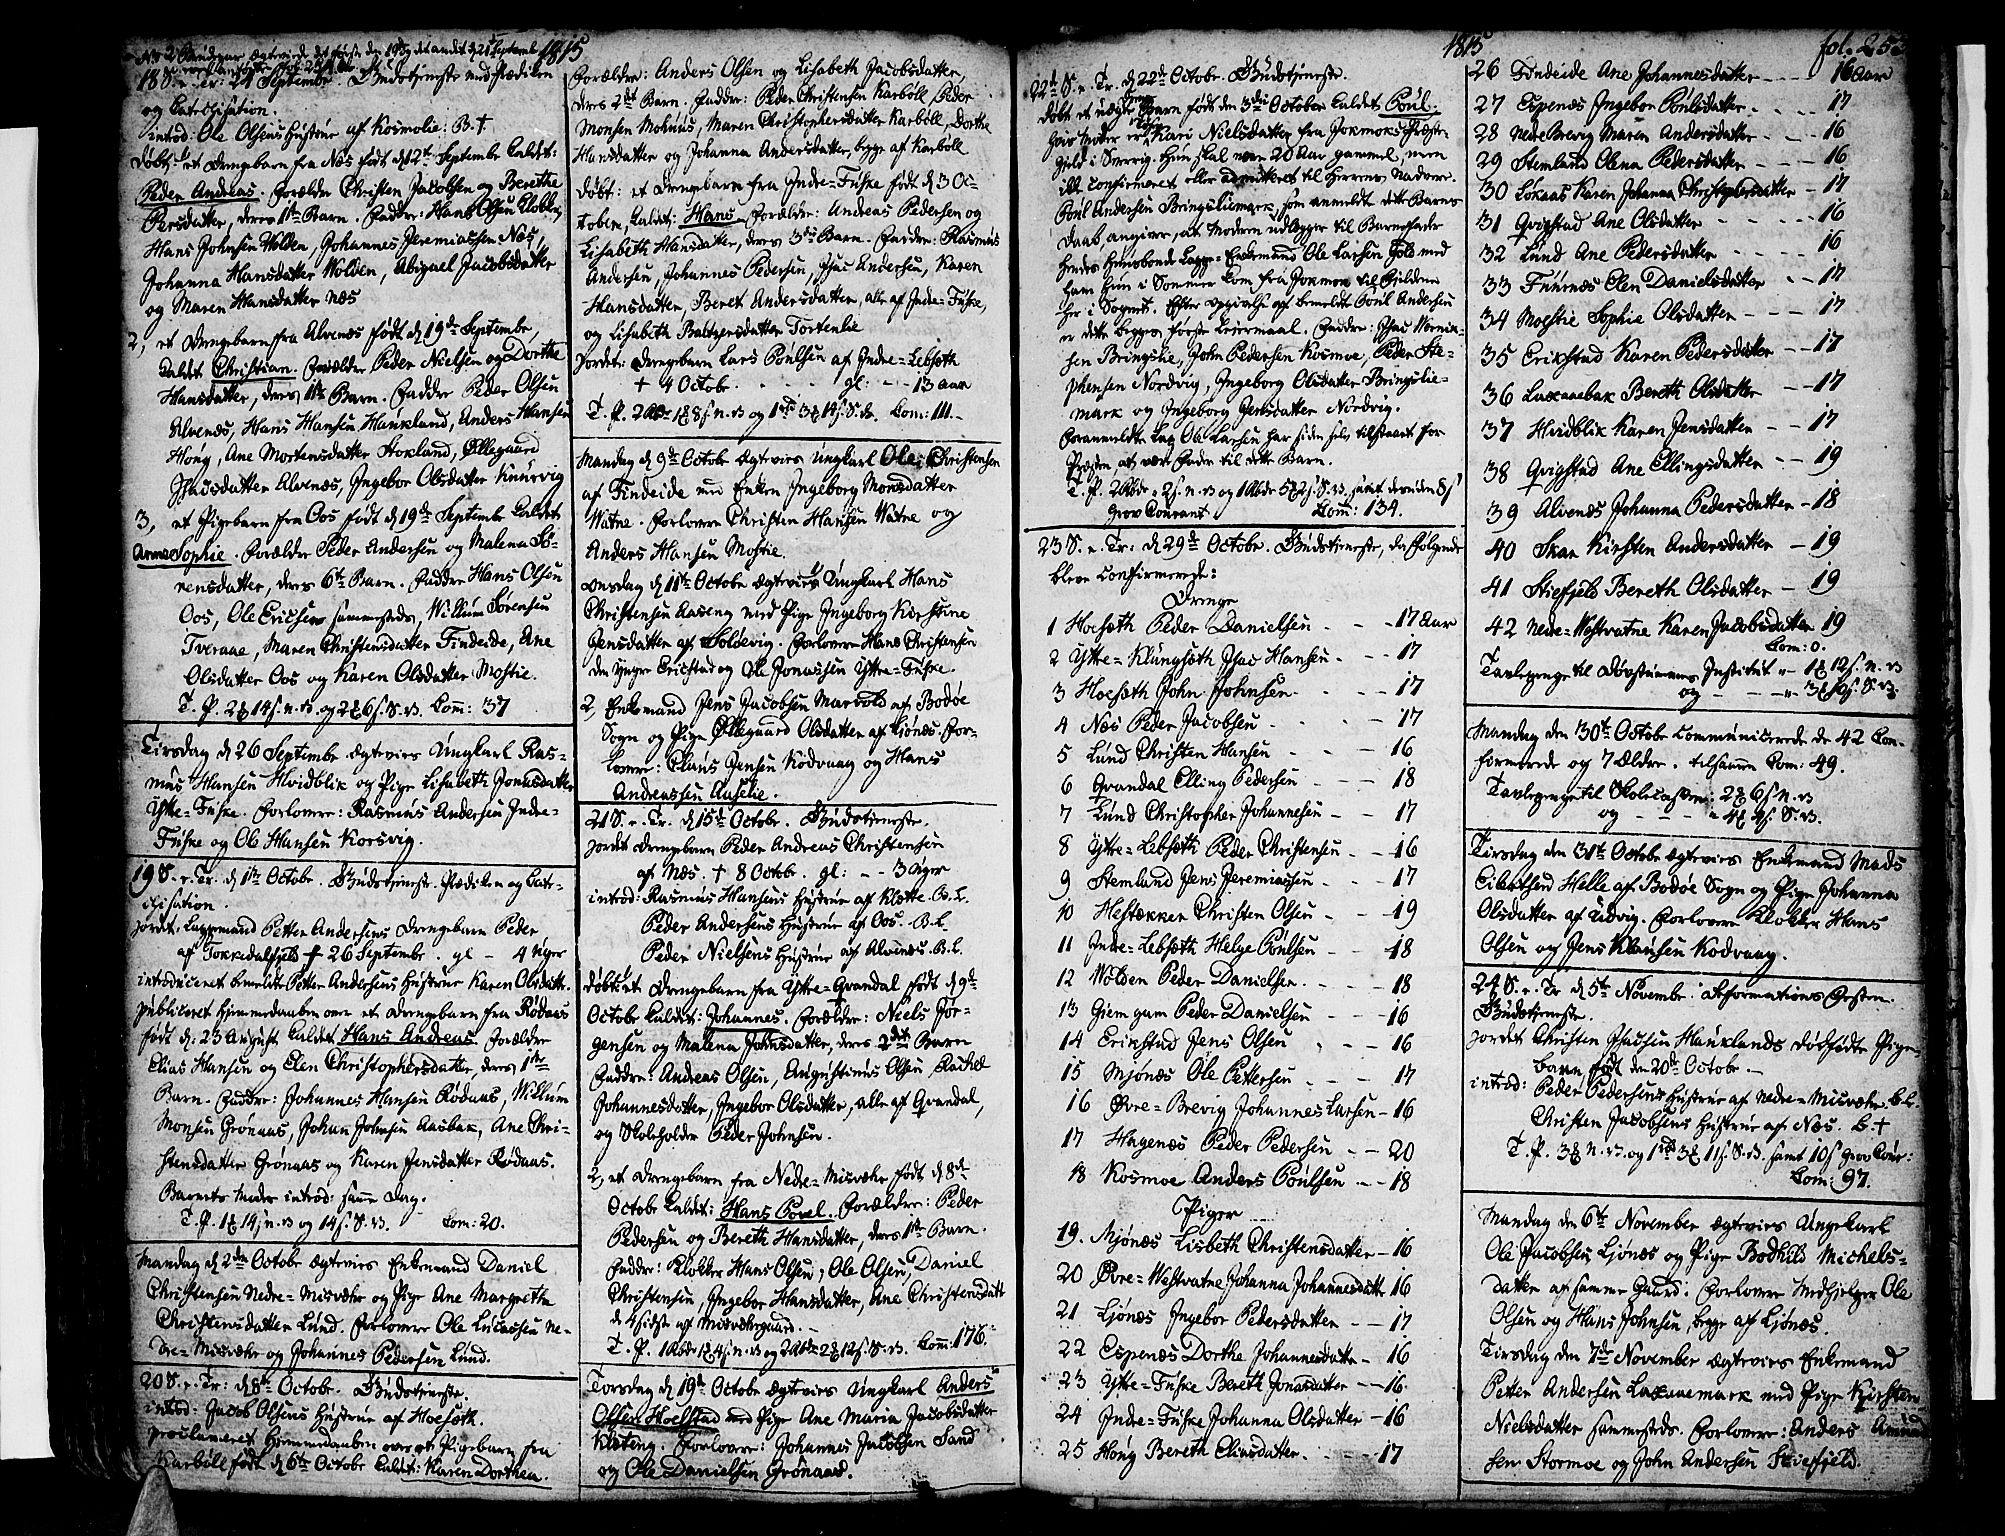 1815
18 S. e. Tr. 24 September. Gudstjeneste med Prædiken
og Catechisation.
introd: Ole Olsens Hustrue af Kosmolie: B. †
Døbt: 1 et Drengebarn fra Næs født d 12t Septembr kaldet:
Peder Andreas. Forældre Christen Jacobsen og Berethe
Persdatter, deres 11te Barn. Faddre: Hans Olsen Klokker,
Hans Johnsen Wolden, Johannes Jeremiassen Næs,
Johanna Hansdatter Wolden, Abigael Jacobsdatter
og Maren Hansdatter Næs
2, et Drengebarn fra Alvenæs født d 19de Septembr,
kaldet Christian. Forældre Peder Nielsen og Dorthe
Hansdatter, deres 11te Barn. Faddre Peder Olsen
Alvenæs, Hans Hansen Haukland, Anders Hansen
Hong, Ane Mortensdatter Stokland, Øllegaard
Isaksdatter Alvenæs, Ingebor Olsdatter Knurvig
3, et Pigebarn fra Oos født d 19de Septembr kaldet
Anne Sophie. Forældre Peder Andersen og Malena Sø-
rensdatter, deres 6te Barn. Faddre Hans Olsen
Oos, Ole Ericsen sammesteds, Willum Sørensen
Tveraae, Maren Christensdatter Findeide, Ane
Olsdatter Oos og Karen Olsdatter Mostie.
T. P. 2 14 s. n. V. og 2 6 s. S. V. Com: 37
Tirsdag d 26 Septembr ægtevies Ungkarl Ras-
mus Hansen Hvidblik og Pige Lisabeth Jonasdatter
Ytre-Fuske. Forlovere: Rasmus Andersen Inde-
Fuske og Ole Hansen Korsvig.
19 S. e. Tr. d 1te Octobr. Gudstjeneste. Prædiken og Cate-
chisation.
jordet: Lappemand Petter Andersens Drengebarn Peder
af Tokkedalsfjeld † 26 Septembr. gl - 4 Uger
introduceret bemeldte Petter Andersens Hustrue Karen Olsdattr.
publiceret hjemmedaaben over et Drengebarn fra Rödaas
født d: 23 August kaldet Hans Andreas. Forældre
Elias Hansen og Elen Christophersdatter, deres 1te
Barn. Faddre: Johannes Hansen Rödaas, Willum
Monsen Grönaas, Johan Johnsen Aasbak, Ane Chri-
stensdatter Grönaas og Karen Jensdatter Rödaas.
Barnets Moder introd: samme Dag.
T. P. 1 14 s. n. V. og 14 s. S. V. Com: 20.
Mandag d 2den Octobr ægtevies Enkemand Daniel
Christensen Nedre-Misvæhr og Pige Ane Margrethe
Christensdatter Lund. Forlovere Ole Lucassen Ne-
dre-Misvæhr og Johannes Pedersen Lund.
20 S. e. Tr: d 8de Octobr. Gudstjeneste.
introd: Jacob Olsens Hustrue af Hoeseth.
proclameret hjemmedaaben over et Pigebarn fra
Karböll født d 6te Octobr kaldet: Karen Dorthea.
Forældre: Anders Olsen og Lisabeth Jacobsdatter,
deres 2det Barn. Faddre: Peder Christensen Karböll, Peder
Monsen Mohuus, Maren Christophersdatter Karböll, Dorthe
Hansdatter og Johanna Andersdatter, begge af Karböll
Døbt: et Drengebarn fra Inde-Fuske født d 3 Oc-
tober, kaldet: Hans. Forældre: Andreas Pedersen og
Lisabeth Hansdatter, deres 3die Barn. Faddre: Rasmus
Andersen, Johannes Pedersen, Isac Andersen, Karen
Hansdatter, Beret Andersdatter, alle af Inde-Fuske,
og Lisabeth Baltzersdatter Tortenlie
Jordet: Drengebarn Lars Poulsen af Indre-Lebseth
† 4 Octobr. gl: - 13 aar
T. P. 2 Rbdr 1 8 s. n. V. og 1 3 14 s. S. V. Com: 111.
Mandag d 9de Octobr ægtevies Ungkarl Ole Christensen
af Findeide med Enken Ingeborg Monsdatter
Watne. Forlovere Christen Hansen Watne og
Anders Hansen Mostie.
Onsdag d 11te Octobr ægtevies 1 Ungkarl Hans
Christensen Aaseng med Pige Ingeborg Kirstine
Jensdatter af Soldevig. Forlovere Hans Christensen
den Yngre Ericstad og Ole Jonassen Ytre-Fuske.
2, Enkemand Jens Jacobsen Marvold af Bodøe
Sogn og Pige Øllegaard Olsdatter af Ljönes. For-
lovere: Claus Jensen Kodvaag og Hans
Andreassen Auselie.
21 S. e. Tr. d 15de Octobr. Gudstjeneste.
Jordet Drengebarn Peder Andreas Christensen
af Næs. † 8 Octobr. gl: - 3 Uger
introd: Rasmus Hansens Hustrue af Klette. B. L.
Peder Andersens Hustrue af Oos. B. L.
Peder Nielsens Hustrue af Alvenæs. B. L.
Døbt: 1 et Drengebarn fra Ytre-Qvandal født d 9de
Octobr kaldet: Johannes. Forældre: Niels Jör-
gensen og Malena Johnsdatter, deres 2det Barn
Faddre: Andreas Olsen, Augustinus Olsen, Rachel
Johannesdatter, Ingebor Olsdatter, alle af Qvandal,
og Skoleholder Peder Johnsen.
2, et Drengebarn fra Nedre-Misvæhr født d 8de
Octobr kaldet: Hans Povel. Forældre: Peder
Pedersen og Bereth Hansdatter, deres 1te Barn.
Faddre: Klokker Hans Olsen, Ole Olsen, Daniel
Christensen, Ingebor Hansdatter, Ane Christensdatt
de 4 sidste af Misvæhrgaard.
T. P. 1 Rbdr 4 s. n. V. og 2 Rbdr 2 12 s. S. V. Com: 176.
Torsdag d 19d Octobr ægtevies Ungkarl Anders
Olsen Hoelstad med Pige Ane Maria Jacobsdatter
Kisteng. Forlovere: Johannes Jacobsen Sand
og Ole Danielsen Grönaas.
1815
fol. 253
22de S. e. Tr. d 22de Octobr. Gudstjeneste.
Døbt et uægte Barn født den 3die October kaldet Poul.
hvis Moder er Pige Kari Nielsdatter fra Jokmoks Præste-
gield i Sverrig. Hun skal være 20 Aar gammel, men
ikke confirmeret eller admitteret til Herrens Nadvere.
Poul Andersen Bringsliemark, som anmeldte dette Barns
Daab, angiver, at Moderen udlægger til Barnefader
hendes Huusbonde Lappe-Enkemand Ole Larsen Fold med
ham hun i Sommer kom fra Jokmok til Fjeldene
her i Sognet. Efter opgivelse af bemeldte Poul Andersen
er dette begges første Leiermaal. Faddre: Isac Wernis-
sen Bringslie, John Pedersen Kosmoe, Peder Ste-
phensen Nordvig, Ingeborg Olsdatter Bringslie-
mark og Ingeborg Jensdatter Nordvig.
Foranmeldte Lap Ole Larsen har siden selv tilstaaet for
Præsten at være Fader til dette Barn.
T. P. 2 Rbdr 2 s. n. V. og 1 Rbdr 5 2 s. S. V. samt desuden 8 s
grov Courant Com: 134.
23 S. e. Tr: d 29de Octobr. Gudstjeneste, da følgende
bleve confirmerede:
Drenge
1 Hoeseth Peder Danielsen - - - 17 Aar
2 Ytre-Klungseth Isac Hansen - - 17
3 Hoeseth John Johnsen - - - 17
4 Næs Peder Jacobsen - - - 17
5 Lund Christen Hansen - - - 16
6 Qvandal Elling Pedersen - - - 18
7 Lund Christopher Johannesen - - 17
8 Ytre-Lebseth Peder Christensen - - 16
9 Stemland Jens Jeremiassen - - 17
10 Hestækker Christen Olsen - - - 19
11 Indre-Lebseth Helge Poulsen - - 18
12 Wolden Peder Danielsen - - - 18
13 Giemgam Peder Danielsen - - 16
14 Erikstad Jens Olsen - - - 16
15 Mjönæs Ole Pettersen - - - 17
16 Øvre-Brevig Johannes Larsen - 16
17 Hagenæs Peder Pedersen - - 20
18 Kosmoe Anders Poulsen - - 18
Piger
19. Mjönæs Lisbeth Christensdatter - 16
20 Øvre-Westvatne Johanna Johannesdatt 16
21 Ljönæs Ingebor Pedersdatter - - 17
22 Espenæs Dorthe Johannesdatter - 16
23 Ytre-Fuske Bereth Jonasdatter - - 16
24 Indre-Fuske Johanna Olsdatter - 16
25 Hong Bereth Eliasdatter - - - 17
26 Findeide Ane Johannesdatter - - - 16 aar
27 Espenæs Ingebor Poulsdatter - - 17
28 Nedre Brevig Maren Andersdatter - - 16
29 Stemland Olena Pedersdatter - - - 16
30 Lökaas Karen Johanna Christophersdatter - 17
31 Qvigstad Ane Olsdatter - - - 16
32 Lund Ane Pedersdatter - - - 16
33 Fuurnæs Elen Danielsdatter - - 17
34 Moestie Sophie Olsdatter - - - 17
35 Erikstad Karen Pedersdatter - - 17
36 Laxaaebak Bereth Olsdatter - - 17
37 Hvidblik Karen Jensdatter - - 17
38 Qvigstad Ane Ellingsdatter - - 19
39 Alvenæs Johanna Pedersdatter - 18
40 Skar Kirsten Andersdatter - 19
41 Stiefjeld Bereth Olsdatter - 19
42 Nedre-Westvatne Karen Jacobsdatter 19
Com: 0.
Tavlepenge til Døvstummes Institut 1 12 s. n. V
og - - - 3 10 s. S. V.
Mandag den 30te Octobr Communicerede de 42 Con-
firmerede og 7 Ældre. tilsamm Com: 49.
Tavlepenge til Skolecassen: 2 6 s n. V
og - - - 4 4 s. S. V.
Tirsdag den 31te Octobr ægtevies Enkemand Mads
Eibertsen Helle af Bodøe Sogn og Pige Johanna
Olsdatter af Ludvig. Forlovere Klokker Hans
Olsen og Jens Klausen Kodvaag.
24 S. e. Tr d 5te Novembr. Reformations Festen.
Gudstjeneste.
Jordet Christen Isacsen Hauklands dødfødte Pige-
barn, født den 20de Octobr.
introd: Peder Pedersens Hustrue af Nedre-Misvæhr. B. L.
Christen Jacobsens Hustrue af Næs. B. †
T. P. 3 n. V. og 1 3 11 s. S. V. samt 10 s grov Cour:
Com: 97.
Mandag den 6te November ægtevies Ungekarl
Ole Jacobsen Ljönes og Pige Bodhild Michels-
datter af samme Gaard. Forlovere Medhjelper Ole
Olsen og Hans Johnsen, begge af Ljönes.
Tirsdag den 7de November ægtevies Enkemand
Petter Andersen Laxaaemark med Pige Kirsten
Nielsdatter sammesteds. Forlovere: Anders Amund-
sen Stormoe og John Andersen Stiefjeld.